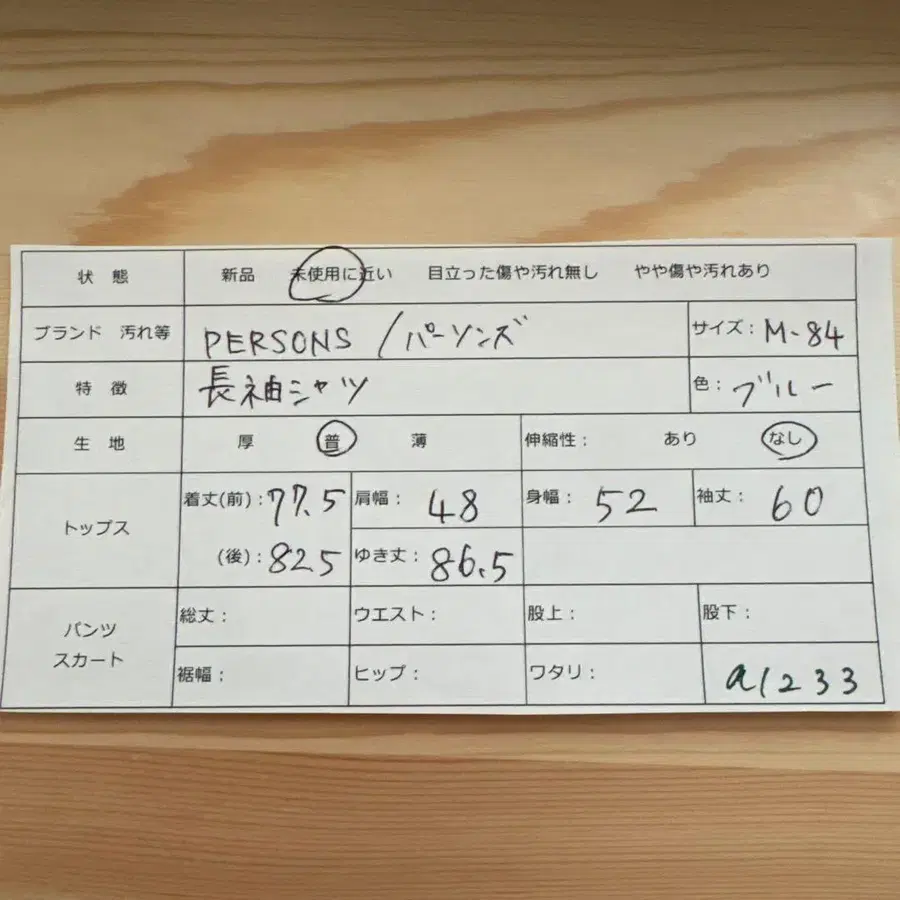 状 態 新品 未使用に近い 目立った傷や汚れ無し やや傷や汚れあり
ブランド 汚れ等 PERSONS /パーソンズ サイズ: M-84
特 徴 長袖シャツ 色: ブルー
生 地 厚 普 薄 伸縮性: あり なし
トップス 着丈(前): 77.5 肩幅: 48 身幅: 52 袖丈: 60
(後): 82.5 ゆき丈: 86.5
パンツ スカート 総丈: ウエスト: 股上: 股下:
裾幅: ヒップ: ワタリ: a1233